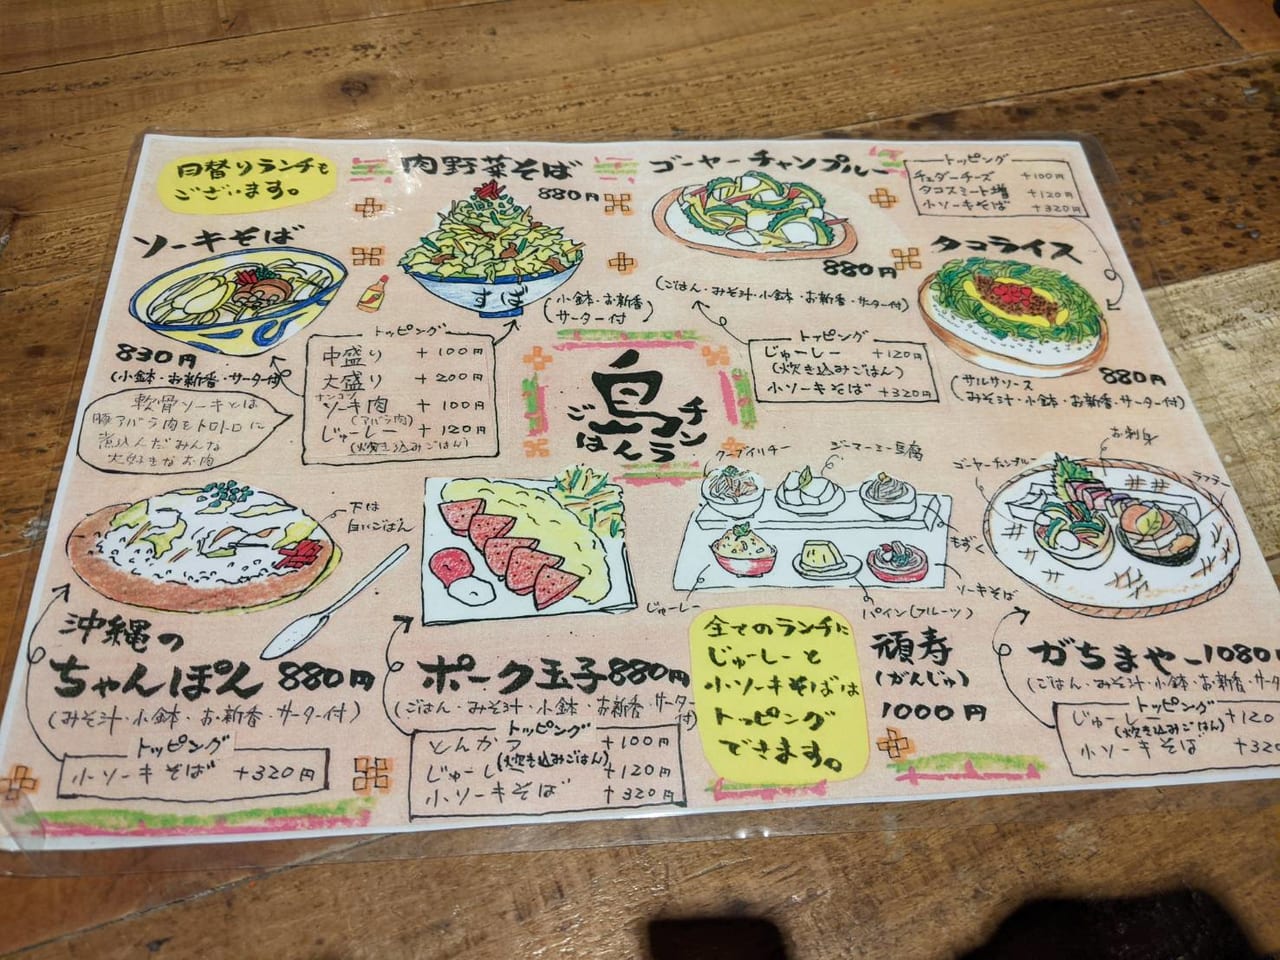 日替りランチも
ございます。
肉野菜そば
880円
すば
(小鉢・お新香
サーター付)
ゴーヤーチャンプルー
880円
(ごはん・みそ汁・小鉢・お新香・サーター付)
トッピング
チェダーチーズ +100円
タコスミート増 +120円
小ソーキそば +320円
ソーキそば
830円
(小鉢・お新香・サーター付)
軟骨ソーキとは
豚アバラ肉をトロトロに
煮込んだみんな
大好きなお肉
トッピング
中盛り +100円
大盛り +200円
ナンコツ
ソーキ肉 +100円
(アバラ肉)
じゅーしー +120円
(炊き込みごはん)
島
ごはんランチ
トッピング
じゅーしー +120円
(炊き込みごはん)
小ソーキそば +320円
タコライス
880円
(サルサソース
みそ汁・小鉢・お新香・サーター付)
下は
白いごはん
沖縄の
ちゃんぽん 880円
(みそ汁・小鉢・お新香・サーター付)
トッピング
小ソーキそば +320円
ポーク玉子 880円
(ごはん・みそ汁・小鉢・お新香・サーター付)
トッピング
とんかつ +100円
じゅーし(炊き込みごはん) +120円
小ソーキそば +320円
クーブイリチー
ジーマーミー豆腐
もずく
ソーキそば
パイン(フルーツ)
じゅーしー
全てのランチに
じゅーしーと
小ソーキそばは
トッピング
できます。
頑寿
(がんじゅ)
1000円
お刺身
ゴーヤーチャンプルー
ラフテー
がちまやー 1080円
(ごはん・みそ汁・小鉢・お新香・サ
トッピング
じゅーしー +120
(炊き込みごはん)
小ソーキそば +320